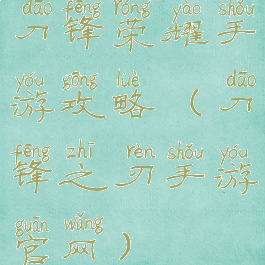 dāo fēng róng yào shǒu
刀锋荣耀手
yóu gōng luè dāo
游攻略(刀
fēng zhī rèn shǒu yóu
锋之刃手游
guān wǎng
官网)